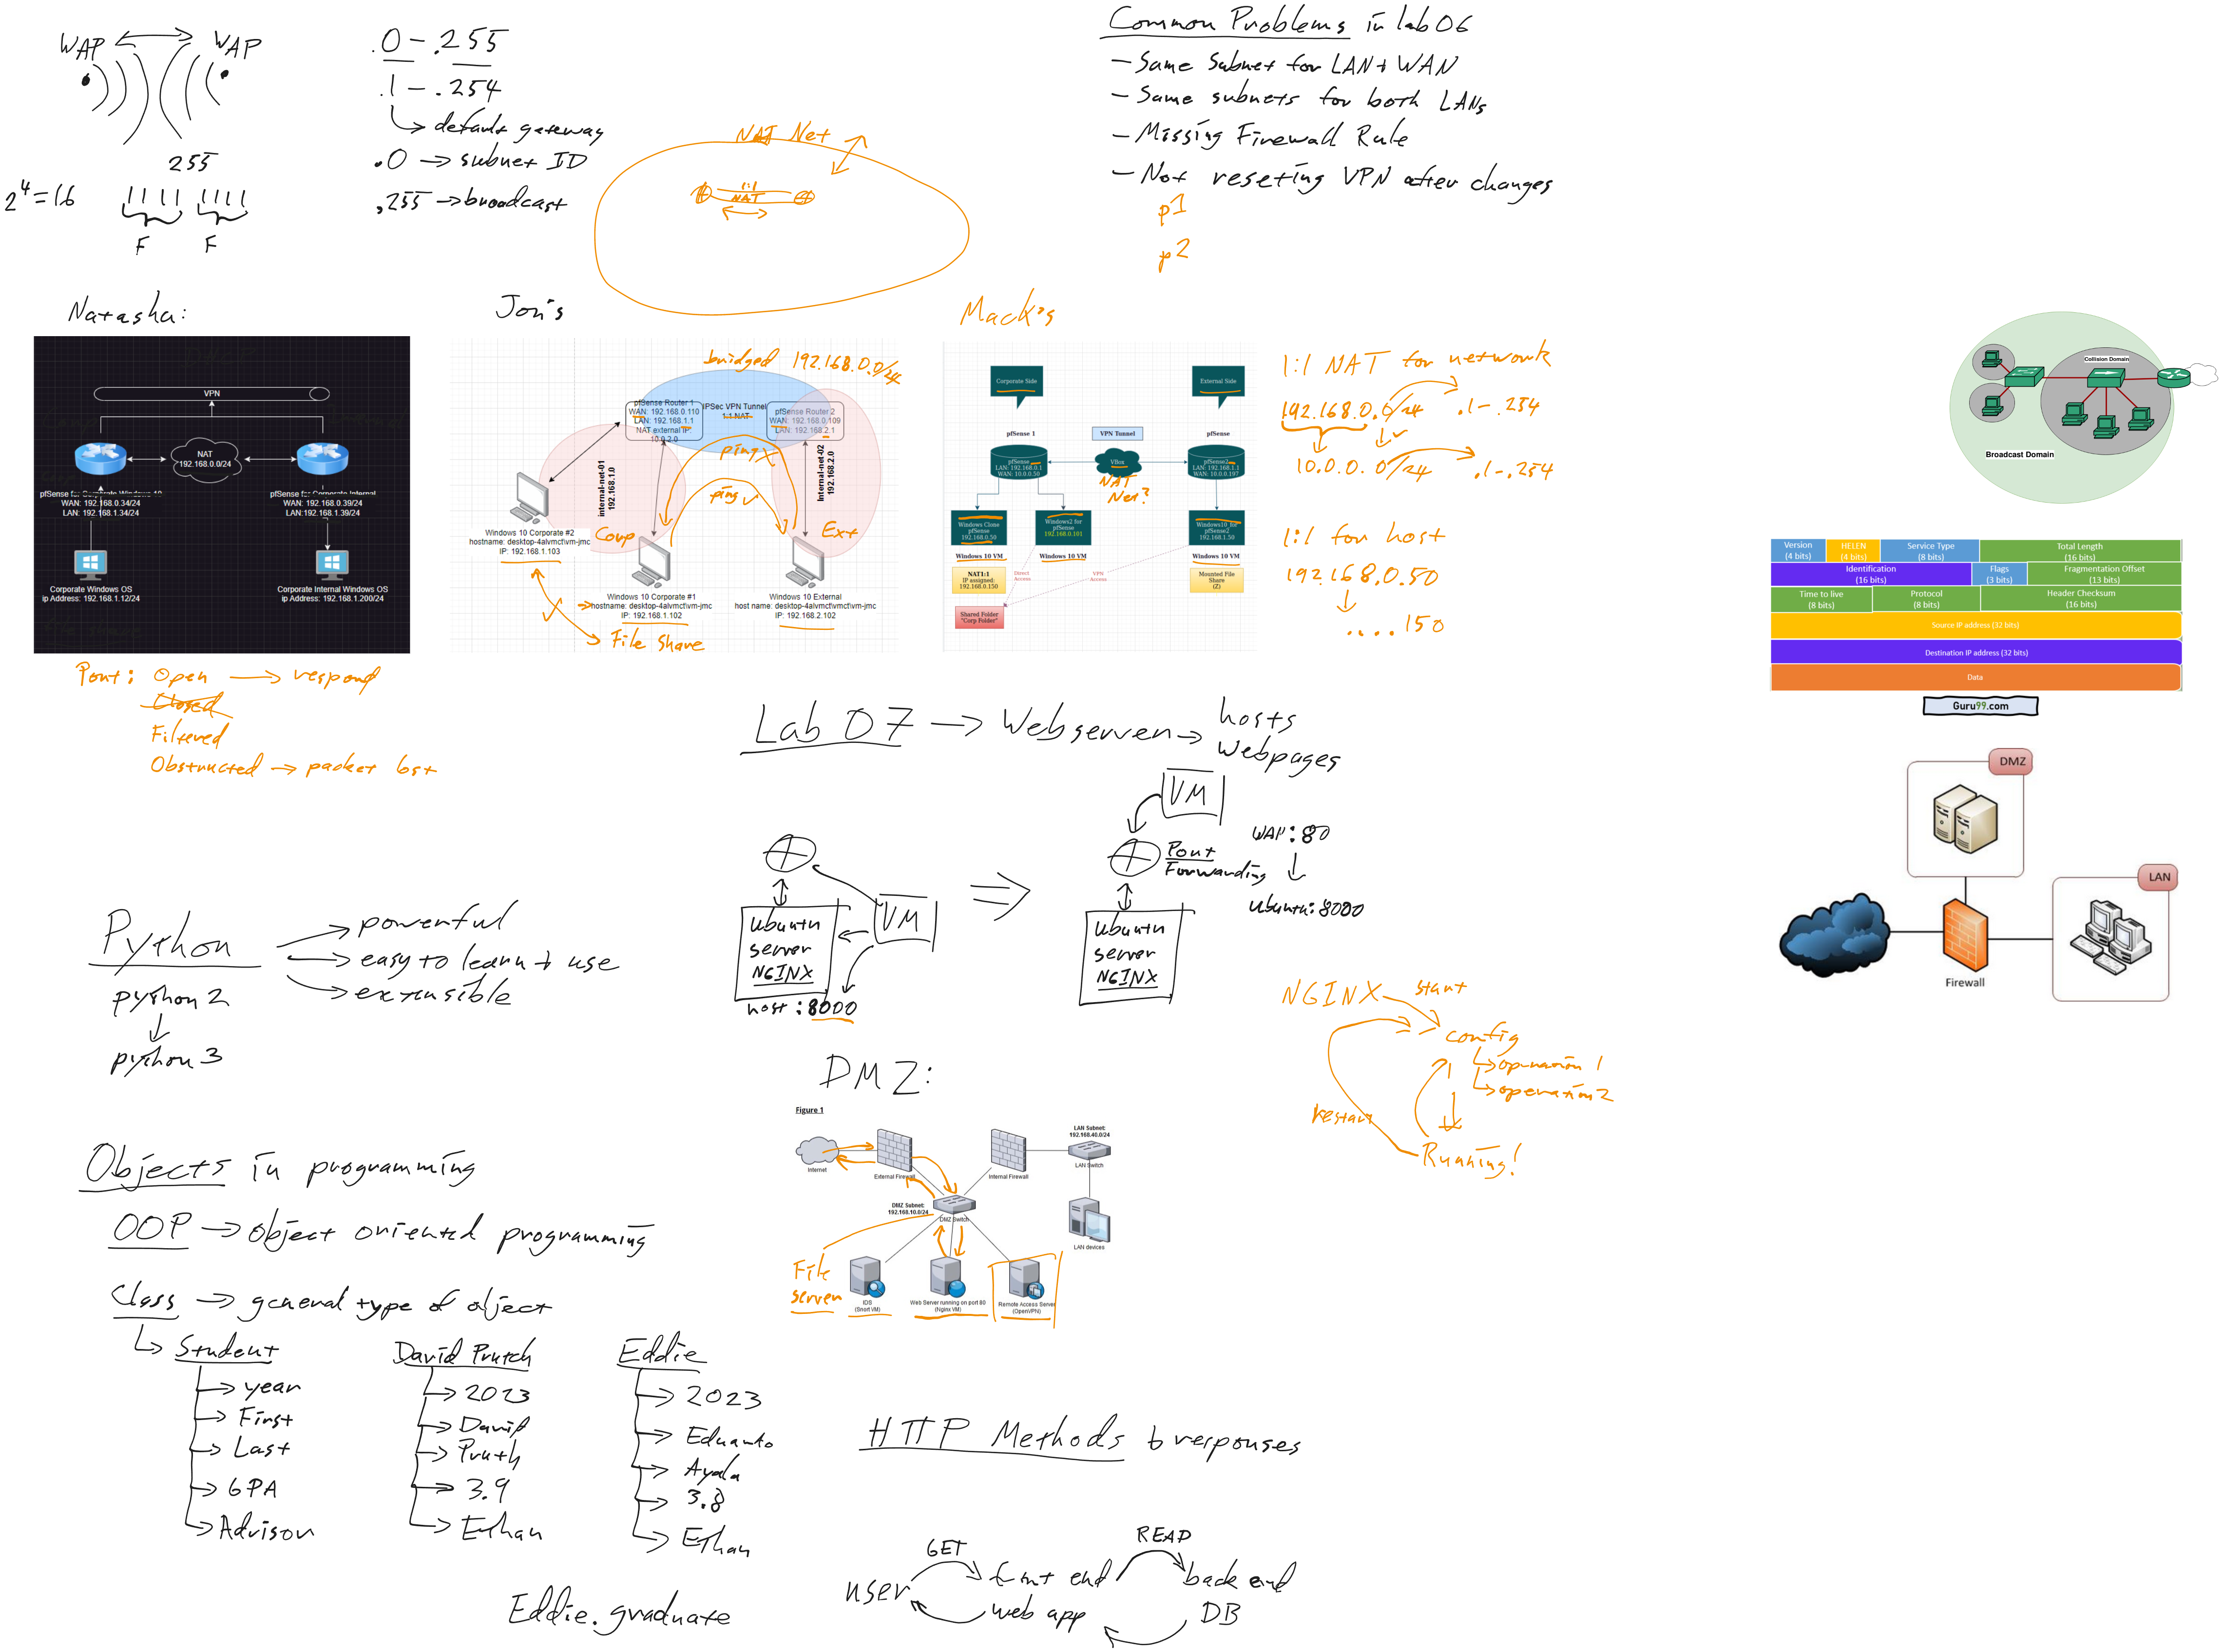 WAP WAP
255
2^4=16
1111 1111
F F
.0 - .255
.1 - .254
default gateway
.0 → subnet ID
.255 → broadcast
NAT Net
1:1
NAT
Common Problems in lab 06
- Same Subnet for LAN + WAN
- Same subnets for both LANs
- Missing Firewall Rule
- Not reseting VPN after changes
p1
p2
Natasha:
VPN
NAT
192.168.0.0/24
pfSense for Corporate Windows 10
WAN: 192.168.0.34/24
LAN: 192.168.1.34/24
pfSense for Corporate Internal
WAN: 192.168.0.39/24
LAN:192.168.1.39/24
Corporate Windows OS
ip Address: 192.168.1.12/24
Corporate Internal Windows OS
ip Address: 192.168.1.200/24
Port: Open → respond
Closed
Filtered
Obstructed → packet lost
Jon's
bridged 192.168.0.0/24
pfSense Router 1
WAN: 192.168.0.110
LAN: 192.168.1.1
NAT external IP
10.0.2.0
IPSec VPN Tunnel
1:1 NAT
pfSense Router 2
WAN: 192.168.0.109
LAN: 192.168.2.1
internal-net-01
192.168.1.0
Internal-net-02
192.168.2.0
ping X
ping ✓
Windows 10 Corporate #2
hostname: desktop-4alvmct\vm-jmc
IP: 192.168.1.103
Corp
Ext
Windows 10 Corporate #1
hostname: desktop-4alvmct\vm-jmc
IP: 192.168.1.102
Windows 10 External
host name: desktop-4alvmct\vm-jmc
IP: 192.168.2.102
File Share
Mack's
Corporate Side
External Side
pfSense 1
VPN Tunnel
pfSense
pfSense
LAN: 192.168.0.1
WAN: 10.0.0.50
VBox
pfSense2
LAN: 192.168.1.1
WAN: 10.0.0.197
NAT
Net?
Windows Clone
pfSense
192.168.0.50
Windows2 for
pfSense
192.168.0.101
Windows10 for
pfSense2
192.168.1.50
Windows 10 VM
Windows 10 VM
Windows 10 VM
NAT1:1
IP assigned:
192.168.0.150
Direct
Access
VPN
Access
Mounted File
Share
(Z)
Shared Folder
"Corp Folder"
1:1 NAT for network
192.168.0.0/24 .1 - .254
10.0.0.0/24 .1 - .254
1:1 for host
192.168.0.50
....150
Collision Domain
Broadcast Domain
Version
(4 bits)
HELEN
(4 bits)
Service Type
(8 bits)
Total Length
(16 bits)
Identification
(16 bits)
Flags
(3 bits)
Fragmentation Offset
(13 bits)
Time to live
(8 bits)
Protocol
(8 bits)
Header Checksum
(16 bits)
Source IP address (32 bits)
Destination IP address (32 bits)
Data
Guru99.com
DMZ
LAN
Firewall
Lab 07 → Webserver → hosts
Webpages
Ubuntu
server
NGINX
host:8000
VM
VM
Port
Forwarding
Ubuntu
server
NGINX
WAN:80
Ubuntu:8000
NGINX start
config
operation 1
operation 2
Restart
Running!
Python
powerful
easy to learn + use
extensible
python 2
python 3
DMZ:
Figure 1
Internet
External Firewall
Internal Firewall
LAN Subnet:
192.168.40.0/24
LAN Switch
DMZ Subnet:
192.168.10.0/24
DMZ Switch
LAN devices
File
server
IDS
(Snort VM)
Web Server running on port 80
(Nginx VM)
Remote Access Server
(OpenVPN)
Objects in programming
OOP → object oriented programming
Class → general type of object
Student
year
First
Last
GPA
Advisor
David Prutch
2023
David
Pruth
3.9
Ethan
Eddie
2023
Eduardo
Ayala
3.8
Ethan
Eddie.graduate
HTTP Methods & responses
user
GET
front end
web app
READ
back end
DB